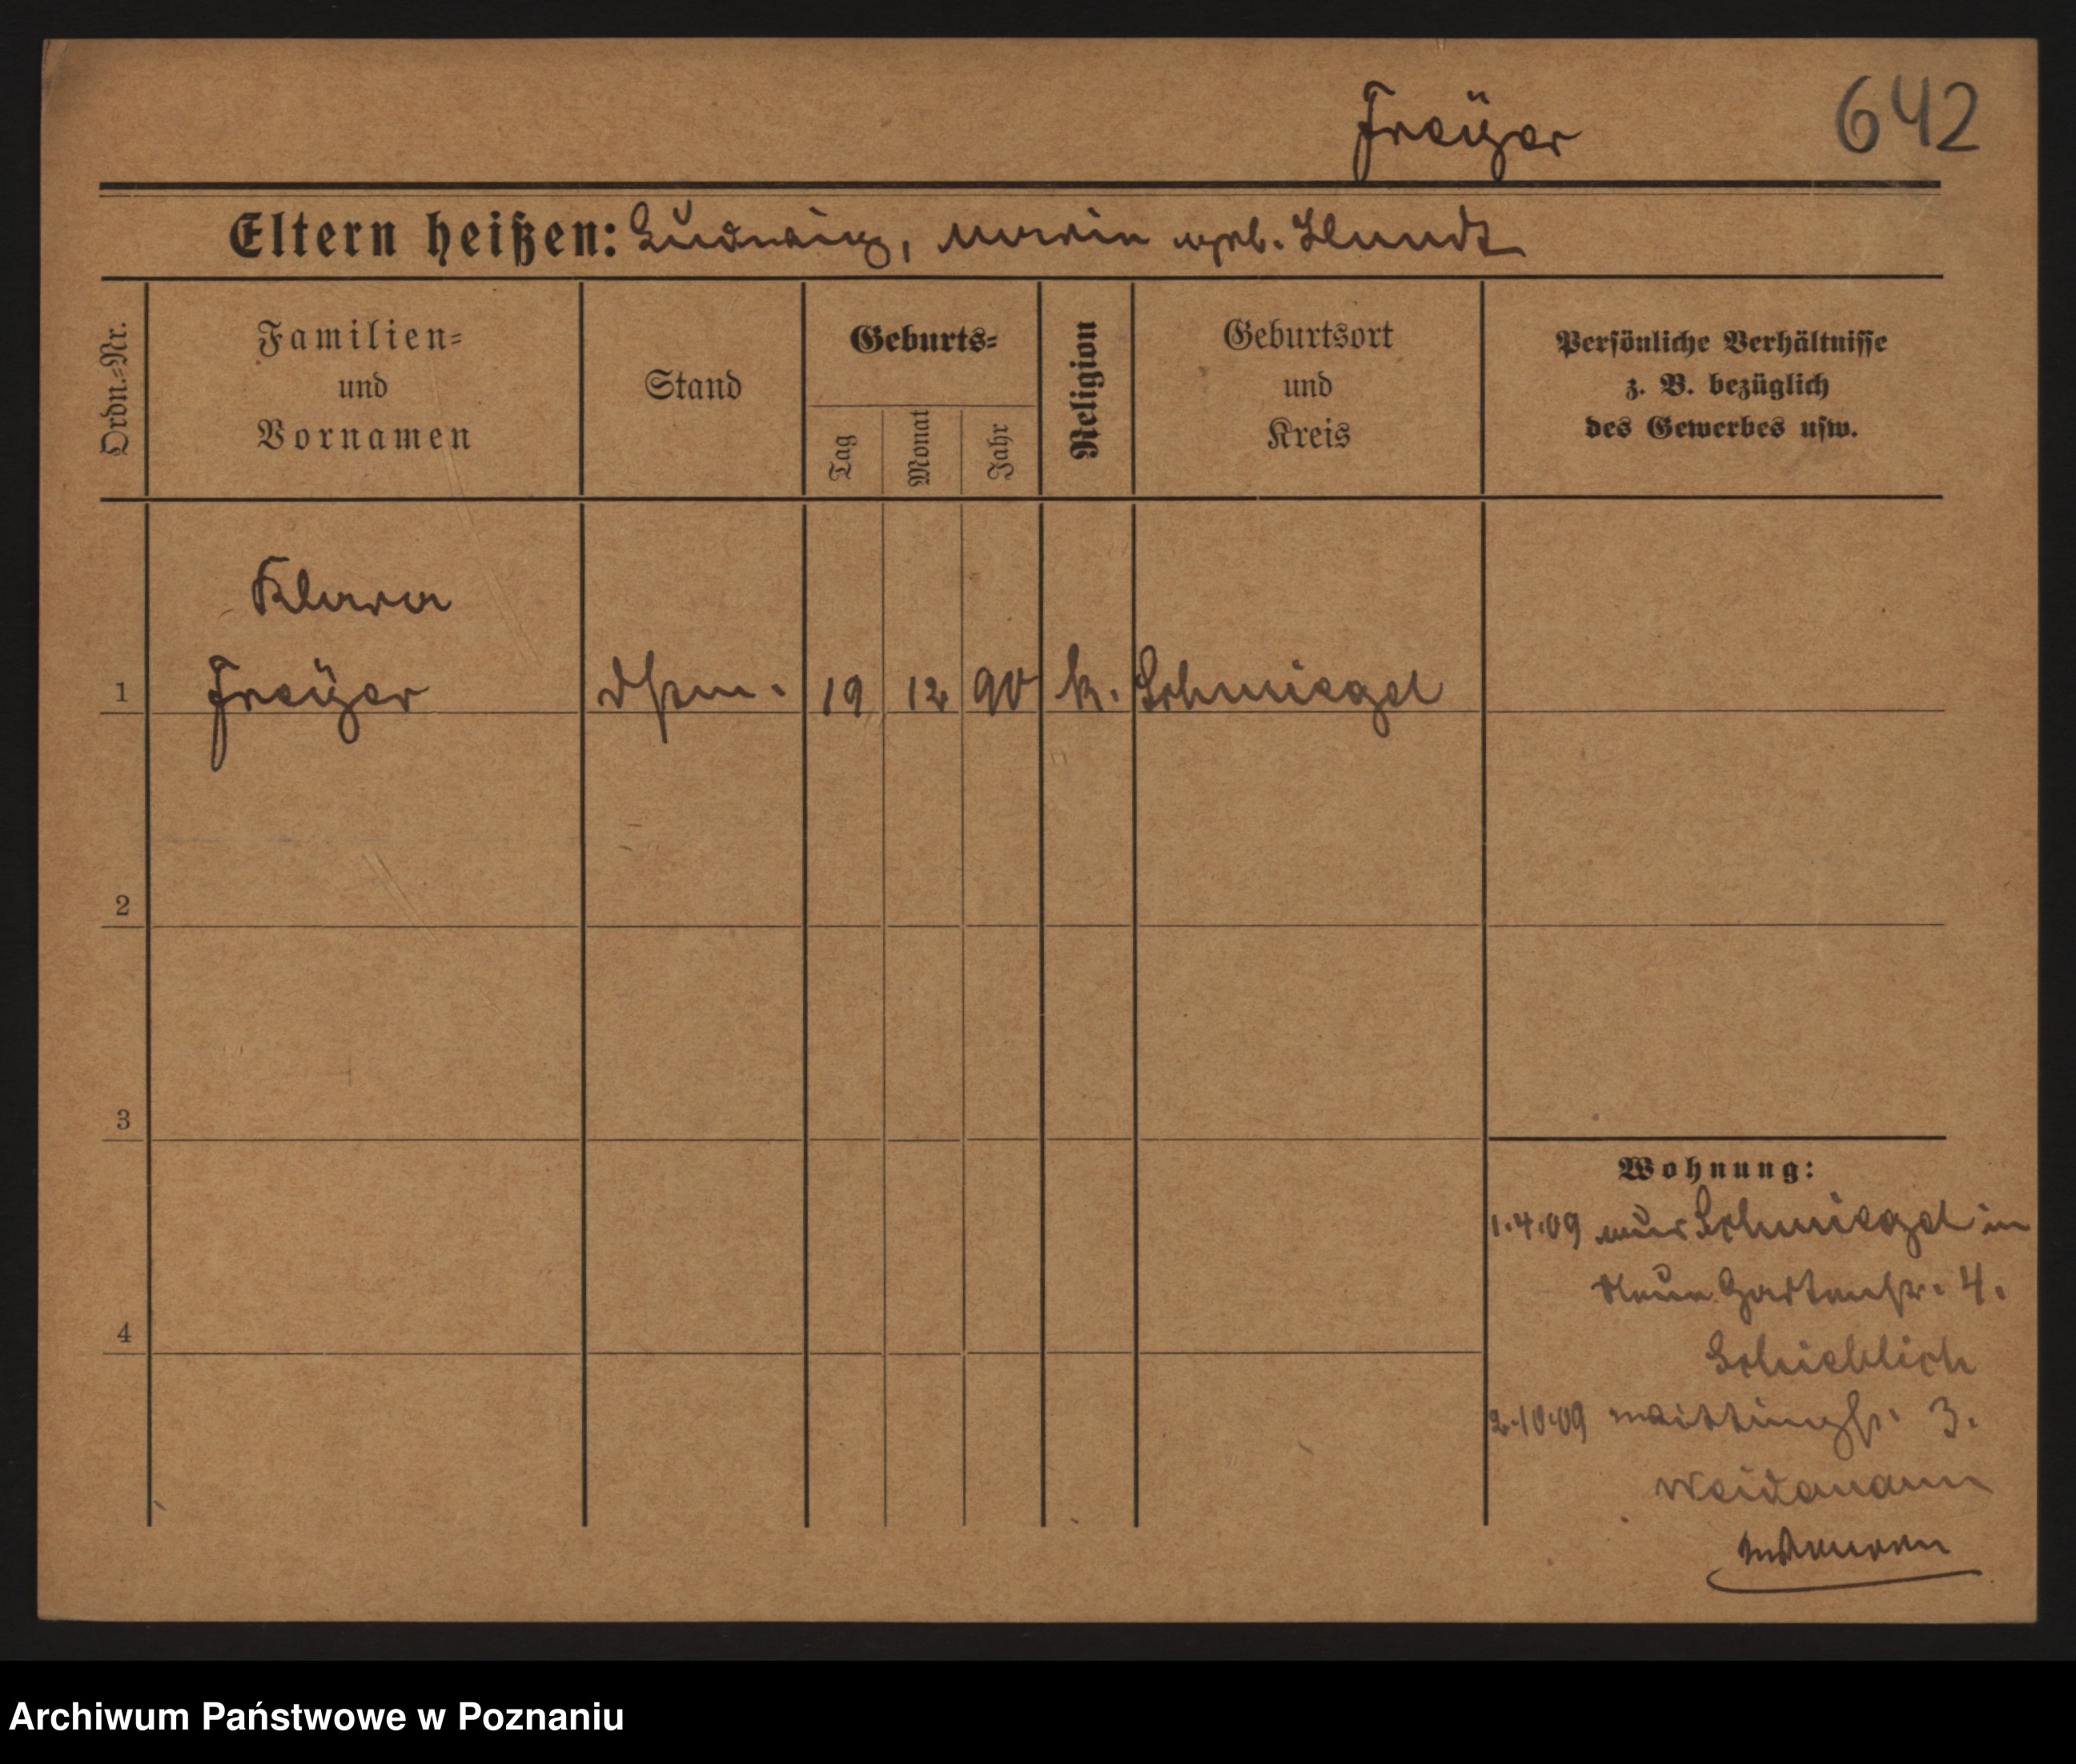 Freÿer
642
Eltern heißen: Ludwig, Marie geb. Hundt
Ordn.=Nr.
Familien=
und
Vornamen
Stand
Geburts=
Tag
Monat
Jahr
Religion
Geburtsort
und
Kreis
Persönliche Verhältnisse
z. B. bezüglich
des Gewerbes usw.
Klara
1 Freÿer 19 12 90 k. Schmiegel
2
3
4
Wohnung:
1.4.09 aus Schmiegel in
Neue Gartenstr. 4.
Schieblich
2.10.09 3.
Weidemann
Archiwum Państwowe w Poznaniu